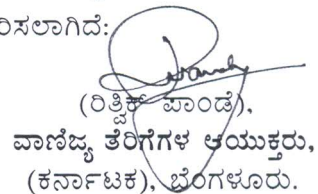 ರಿಸಲಾಗಿದೆ:
(ರಿತ್ವಿಕ್ ಪಾಂಡೆ),
ವಾಣಿಜ್ಯ ತೆರಿಗೆಗಳ ಆಯುಕ್ತರು,
(ಕರ್ನಾಟಕ), ಬೆಂಗಳೂರು.